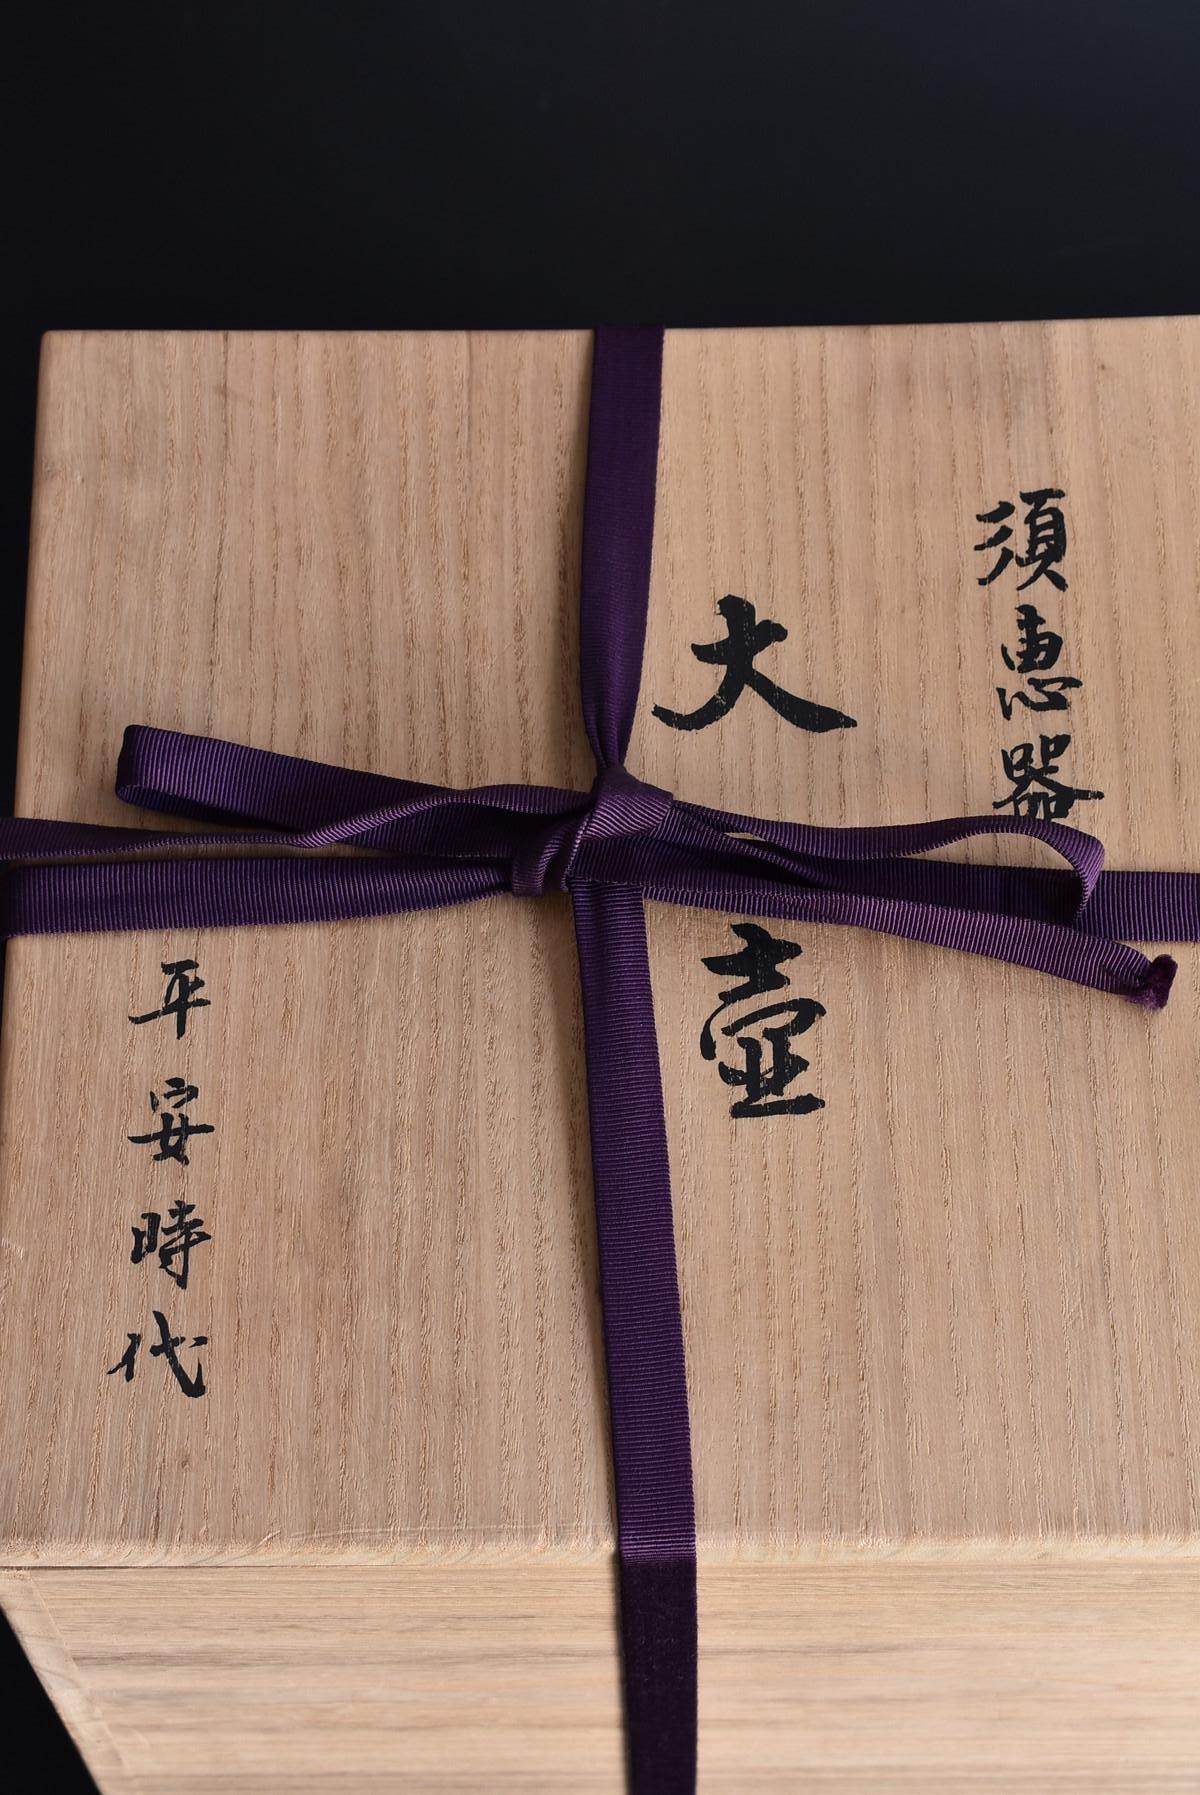 須恵器
大壺
平安時代